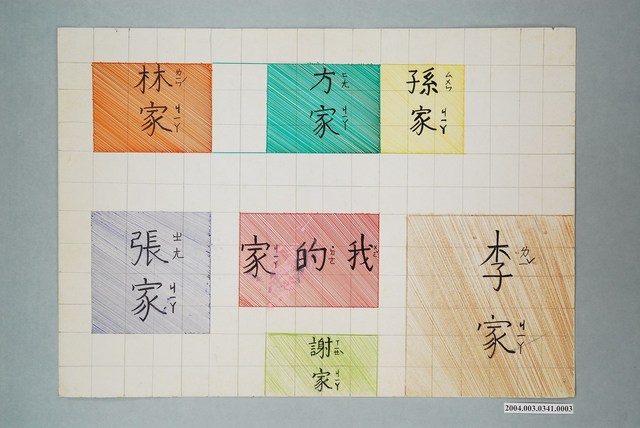 林ㄌㄧㄣˊ家ㄐㄧㄚ
方ㄈㄤ家ㄐㄧㄚ
孫ㄙㄨㄣ家ㄐㄧㄚ
張ㄓㄤ家ㄐㄧㄚ
我ㄨㄛˇ的ㄉㄜ˙家ㄐㄧㄚ
李ㄌㄧˇ家ㄐㄧㄚ
謝ㄒㄧㄝˋ家ㄐㄧㄚ
2004.003.0341.0003